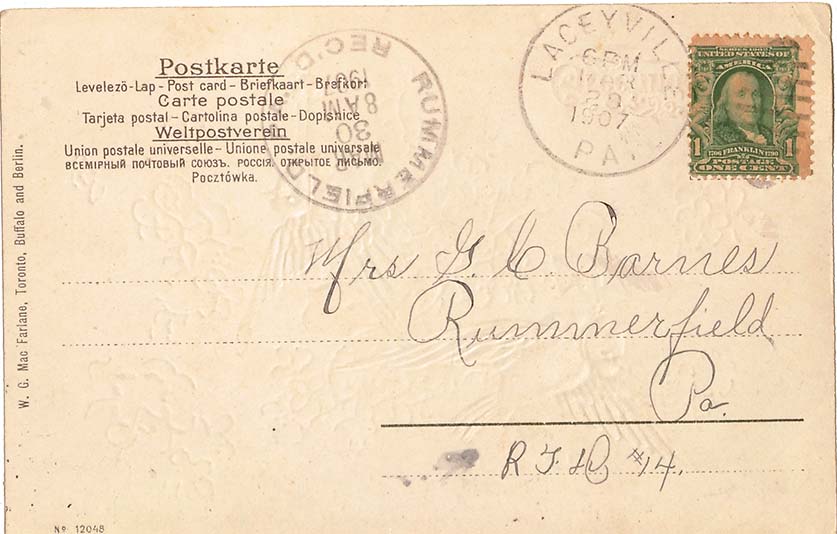 Postkarte
Levelező-Lap - Post card - Briefkaart - Brefkort
Carte postale
Tarjeta postal - Cartolina postale - Dopisnice
Weltpostverein
Union postale universelle - Unione postale universale
ВСЕМІРНЫЙ ПОЧТОВЫЙ СОЮЗЪ. РОССІЯ. ОТКРЫТОЕ ПИСЬМО.
Pocztówka.
RUMMERFIELD
REC'D.
MAR
30
8 AM
1907
LACEYVILLE
6 PM
MAR
29
1907
PA.
SERIES 1902
UNITED STATES OF
AMERICA
1 1
1706 FRANKLIN 1790
POSTAGE
ONE CENT
Mrs G. C. Barnes
Rummerfield
Pa.
R F D #14.
W. G. Mac Farlane, Toronto, Buffalo and Berlin.
Nº 12048